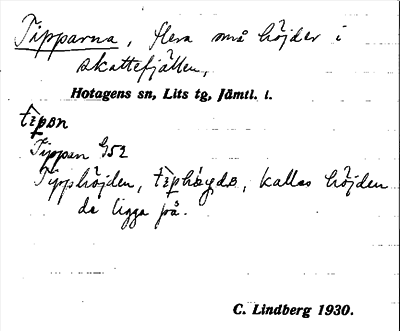 Tipparna, flera små höjder i
skattefjällen,
Hotagens sn, Lits tg, Jämtl. l.
tipən
Tippen G52
Tipphöjden, tiphöydə, kallas höjden
de ligga på.
C. Lindberg 1930.